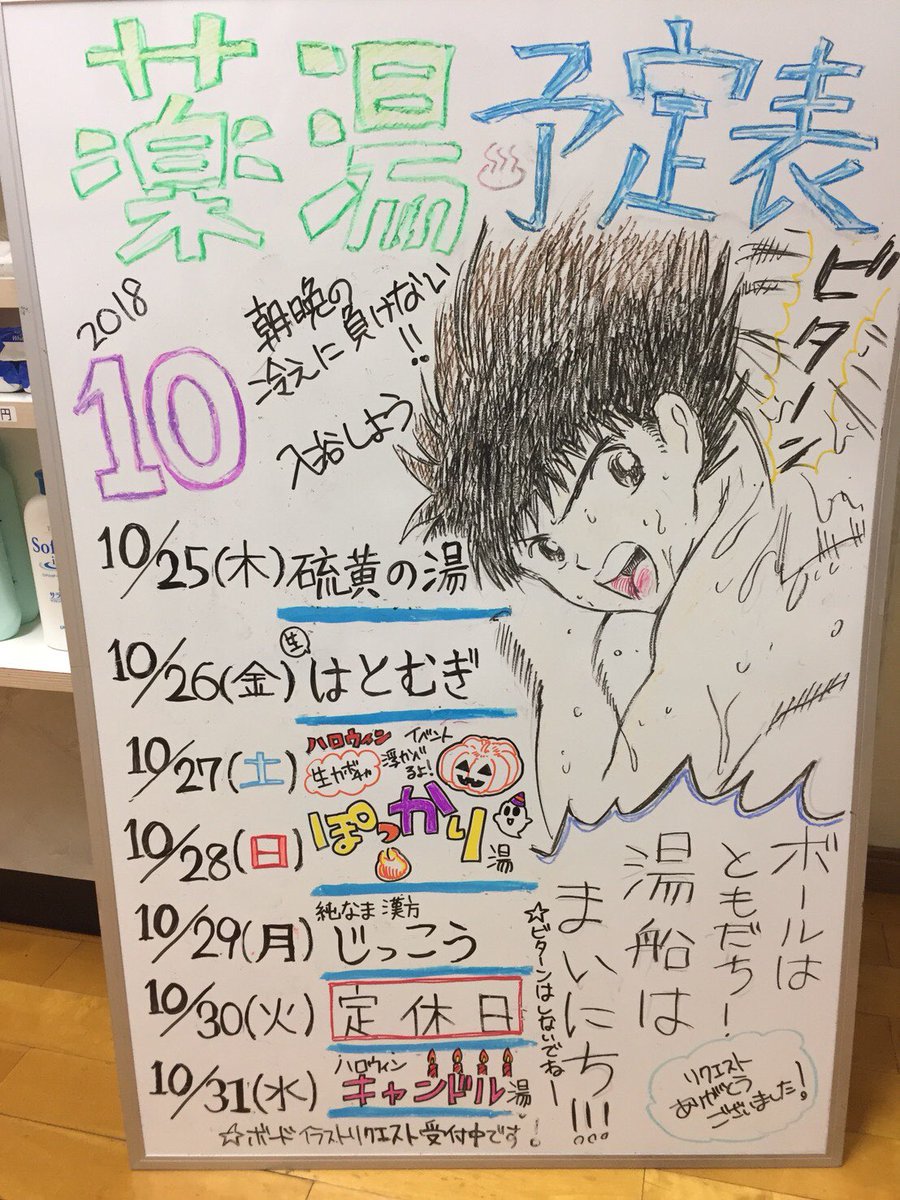 薬湯♨予定表
2018
10
朝晩の
冷えに負けない!!
入浴しよう
ビターン
10/25(木)硫黄の湯
10/26(金)生はとむぎ
10/27(土)
10/28(日)
ハロウィンイベント
生カボチャ浮かべるよ!
ぽっかり湯
10/29(月)純なま漢方
じっこう
10/30(火)定休日
10/31(水)ハロウィン
キャンドル湯
☆ボードイラストリクエスト受付中です!
ボールは
ともだち!
湯船は
まいにち!!!
☆ビターンはしないでねー
リクエスト
ありがとう
ございました!
円
Sof